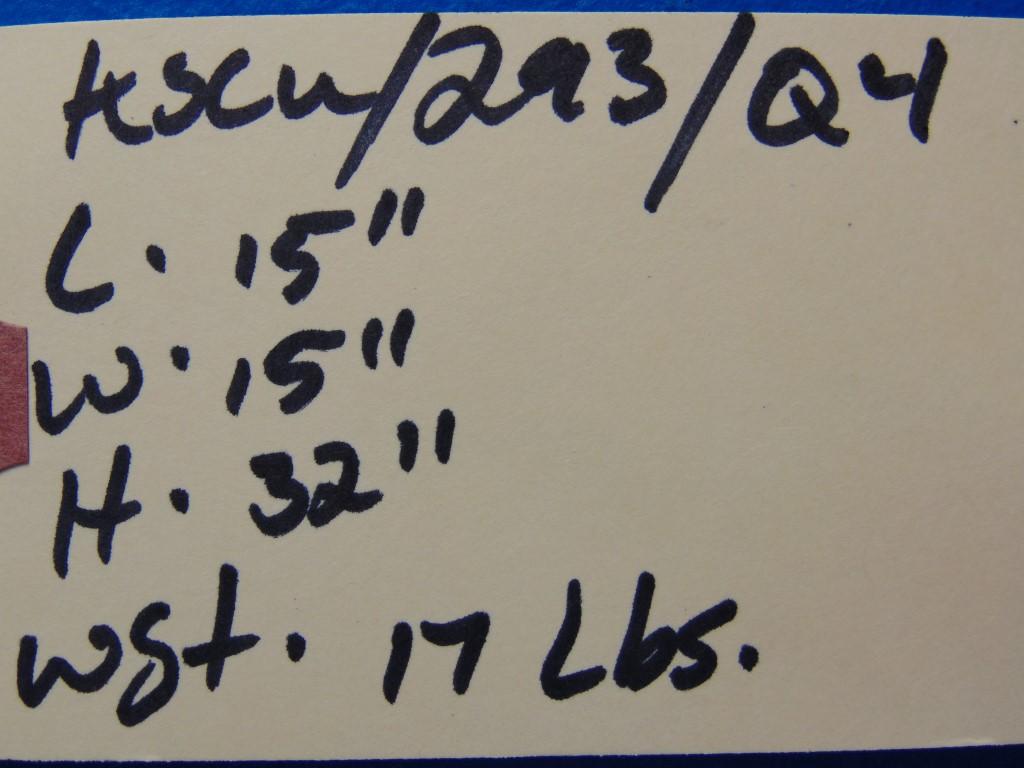 HSCU/293/Q4
L. 15"
W. 15"
H. 32"
Wgt. 17 Lbs.